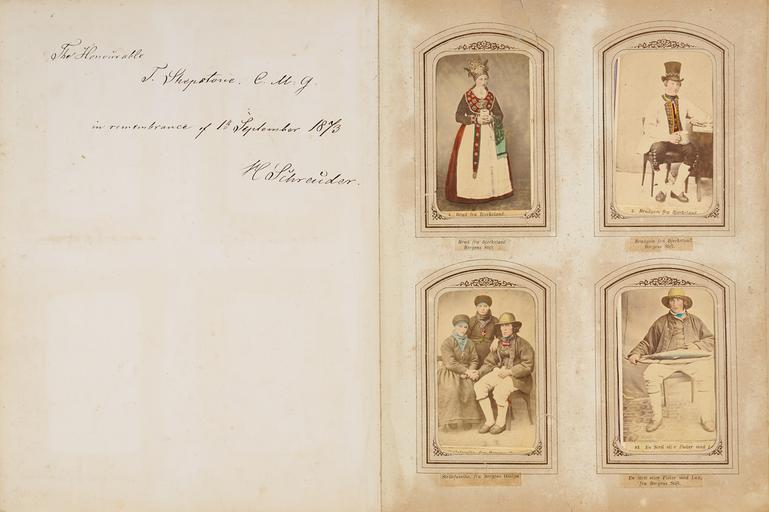 The Honourable
T. Shepstone. C. M. G.
in remembrance of 1st September 1873
H Schreuder.
4. Brud fra Bjerkeland
Brud fra Bjerkeland
Bergens Stift.
5. Brudgom fra Bjerkeland
Brudgom fra Bjerkeland
Bergens Stift.
Strilefamilie, fra Bergens
En Stril eller Fisker med L
En Stril eller Fisker med Lax,
fra Bergens Stift.